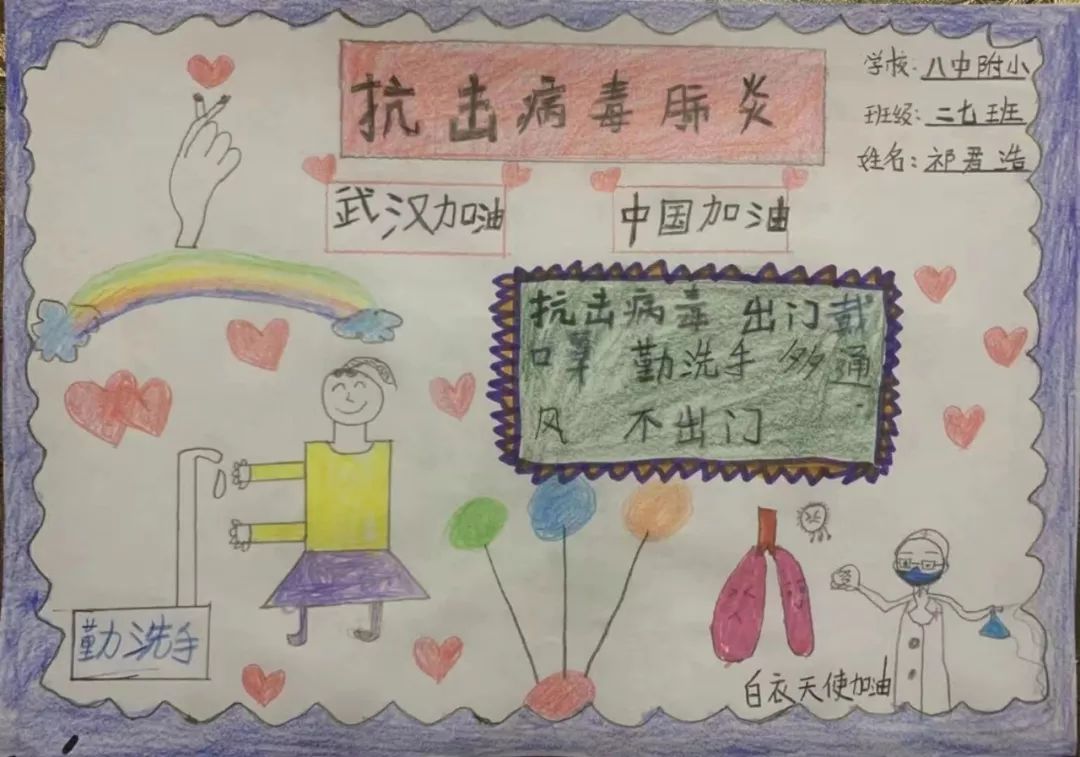 抗击病毒肺炎
学校: 八中附小
班级: 二七班
姓名: 祁君浩
武汉加油
中国加油
抗击病毒 出门戴
口罩 勤洗手 多通
风 不出门
勤洗手
白衣天使加油